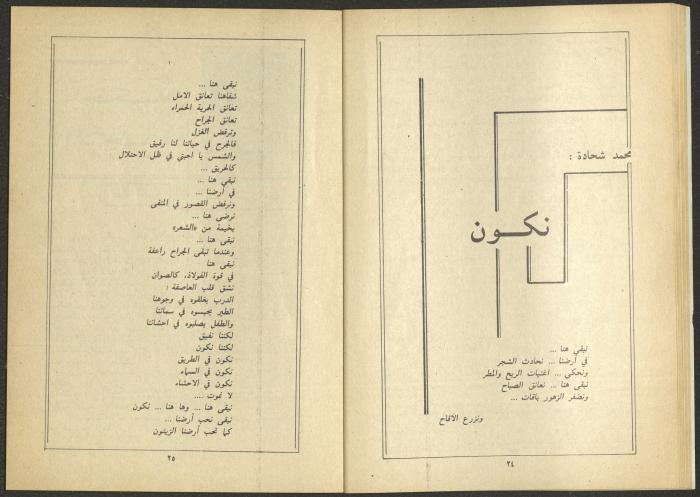 محمد شحادة :
نكــون
نبقى هنا ...
في أرضنا ... نحادث الشجر
ونحكي ... اغنيات الريح والمطر
نبقى هنا ... نعانق الصباح
ونضفر الزهور باقات ...
ونزرع الاقاح
٢٤
نبقى هنا ...
شفاهنا تعانق الامل
تعانق الحرية الحمراء
تعانق الجراح
وترفض الغزل
فالجرح في حياتنا لنا رفيق
والشمس يا احبتي في ظل الاحتلال
كالحريق ...
نبقى هنا ...
في أرضنا ...
ونرفض القصور في المنفى
نرضى هنا ...
بخيمة من «الشعر»
نبقى هنا ...
وعندما تبقى الجراح راعفة
نبقى هنا
في قوة الفولاذ، كالصوان
نشق قلب العاصفة :
الدرب يغلقوه في وجوهنا
الطير يحبسوه في سمائنا
والطفل يصلبوه في احشائنا
لكننا نفيق
لكننا نكون
نكون في الطريق
نكون في السماء
نكون في الاحشاء
لا نموت ....
نبقى هنا ... وها هنا ... نكون
نبقى نحب أرضنا ...
كما تحب أرضنا الزيتون
٢٥